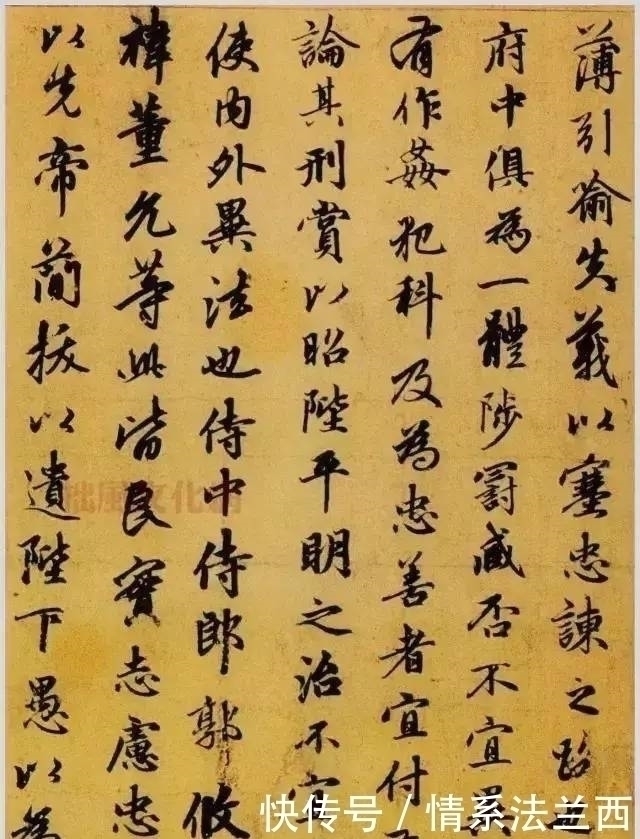 薄引喻失義以塞忠諫之路
府中俱為一體陟罰臧否不宜
有作姦犯科及為忠善者宜付
論其刑賞以昭陛平明之治不宜
使内外異法也侍中侍郎郭攸
禕董允等此皆良實志慮忠
以先帝簡拔以遺陛下愚以為
拙風文化網
快传号 / 情系法兰西